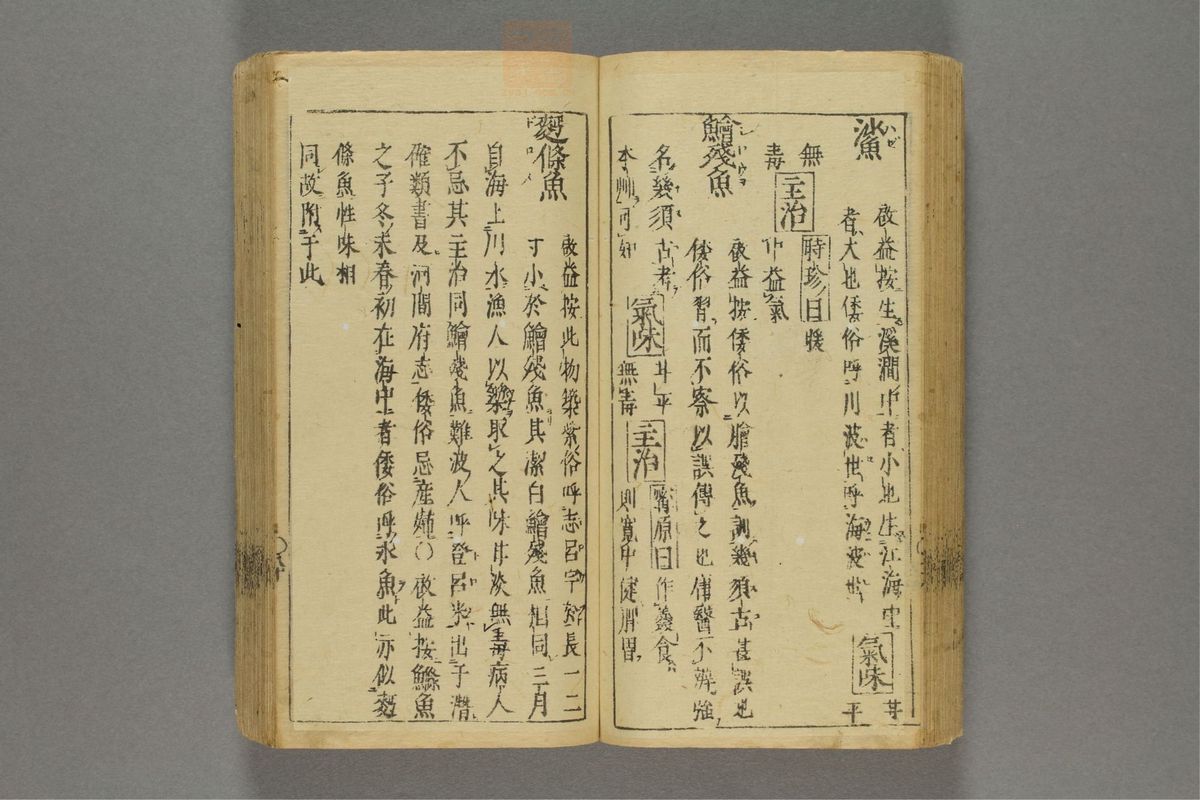 鯊
啟益按生溪澗中者小也生江海中
者大也倭俗呼川波世呼海波世
氣味 甘平
無毒
主治
時珍曰暖
中益氣
鱠殘魚
啟益按倭俗以膾殘魚訓幾須古甚誤也
倭俗習而不察以誤傳之也庸醫不辨強
名幾須古者
氣味 甘平無毒
主治
寗原曰作羹食
則寬中健胃
麪條魚
啟益按此物築紫俗呼志呂宇知長一二
寸小於鱠殘魚其潔白鱠殘魚相同三月
自海上川水漁人以築取之其味甘淡無毒病人
不忌其主治同鱠殘魚難波人呼登呂米出于潛
確類書及河間府志倭俗忌産婦〇啟益按鰷魚
之子冬末春初在海中者倭俗呼氷魚此亦似麪
條魚性味相
同故附于此